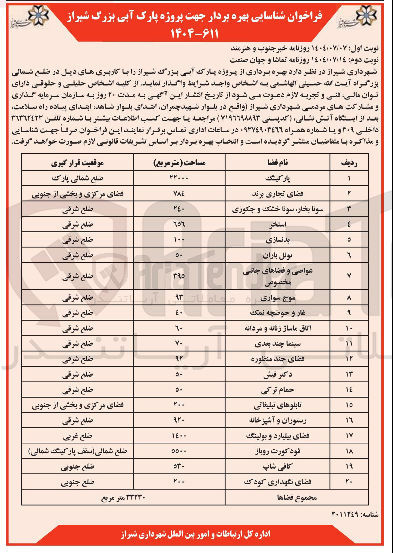 فراخوان شناسایی بهره بردار جهت پروژه پارک آبی بزرگ شیراز
۱۴۰۴-۶۱۱
نوبت اول: ۱۴۰۴/۰۷/۰۷ روزنامه خبرجنوب و هنرمند
نوبت دوم: ۱۴۰۴/۰۷/۱۴ روزنامه تماشا و جهان صنعت
شهرداری شیراز در نظر دارد بهره برداری از پروژه پارک آبی بزرگ شیراز را با کاربری های ذیل در ضلع شمالی
بزرگراه آیت الله حسینی الهاشمی به اشخاص واجد شرایط واگذار نماید. از کلیه اشخاص حقیقی و حقوقی دارای
توان مالی، فنی و تجربه لازم دعوت می شود از تاریخ انتشار این آگهی به مدت ۲۰ روز به سازمان سرمایه گذاری
و مشارکت های مردمی شهرداری شیراز (واقع در بلوار شهیدچمران، ابتدای بلوار شاهد، ابتدای پیاده راه سلامت،
بعد از ایستگاه آتش نشانی، (کدپستی ۷۱۹۶۶۹۸۸۹۳) مراجعه یا جهت کسب اطلاعات بیشتر با شماره تلفن ۳۶۳۶۲۴۲۲
داخلی ۳۰۹ و یا شماره همراه ۰۹۳۷۴۹۰۳۴۶۶ در ساعات اداری تماس برقرار نمایند. این فراخوان صرفا جهت شناسایی
و مذاکره با متقاضیان منتشر گردیده است و انتخاب بهره بردار بر اساس تشریفات قانونی لازم صورت خواهد گرفت.
ردیف نام فضا مساحت (متر مربع) موقعیت قرار گیری
۱ پارکینگ ۲۲۰۰۰ ضلع شمالی پارک
۲ فضای تجاری برند ۷۸۴ فضای مرکزی و بخشی از جنوبی
۳ سونا بخار، سونا خشک و جکوزی ۲۴۰ ضلع شرقی
۴ استخر ۶۵۶ ضلع شرقی
۵ بدنسازی ۱۰۰ ضلع شرقی
۶ تونل باران ۵۰ ضلع شرقی
۷ غواصی و فضاهای جانبی مخصوص ۳۹۵ ضلع شرقی
۸ موج سواری ۹۳ ضلع شرقی
۹ غار و حوضچه نمک ۴۰ ضلع شرقی
۱۰ اتاق ماساژ زنانه و مردانه ۶۰ ضلع شرقی
۱۱ سینما چند بعدی ۷۰ ضلع شرقی
۱۲ فضای چند منظوره ۹۲ ضلع شرقی
۱۳ دکتر فیش ۵۰ ضلع شرقی
۱۴ حمام ترکی ۵۰ ضلع شرقی
۱۵ تابلوهای تبلیغاتی ۲۰۰ فضای مرکزی و بخشی از جنوبی
۱۶ رستوران و آشپزخانه ۹۲۰ ضلع شرقی
۱۷ فضای بیلیارد و بولینگ ۱۴۰۰ ضلع غربی
۱۸ فودکورت روباز ۵۵۰۰ ضلع شمالی (سقف پارکینگ شمالی)
۱۹ کافی شاپ ۵۳۰ ضلع جنوبی
۲۰ فضای نگهداری کودک ۲۰۰ ضلع جنوبی
مجموع فضاها ۳۳۴۳۰ متر مربع
شناسه: ۲۰۱۱۴۴۹
اداره کل ارتباطات و امور بین الملل شهرداری شیراز